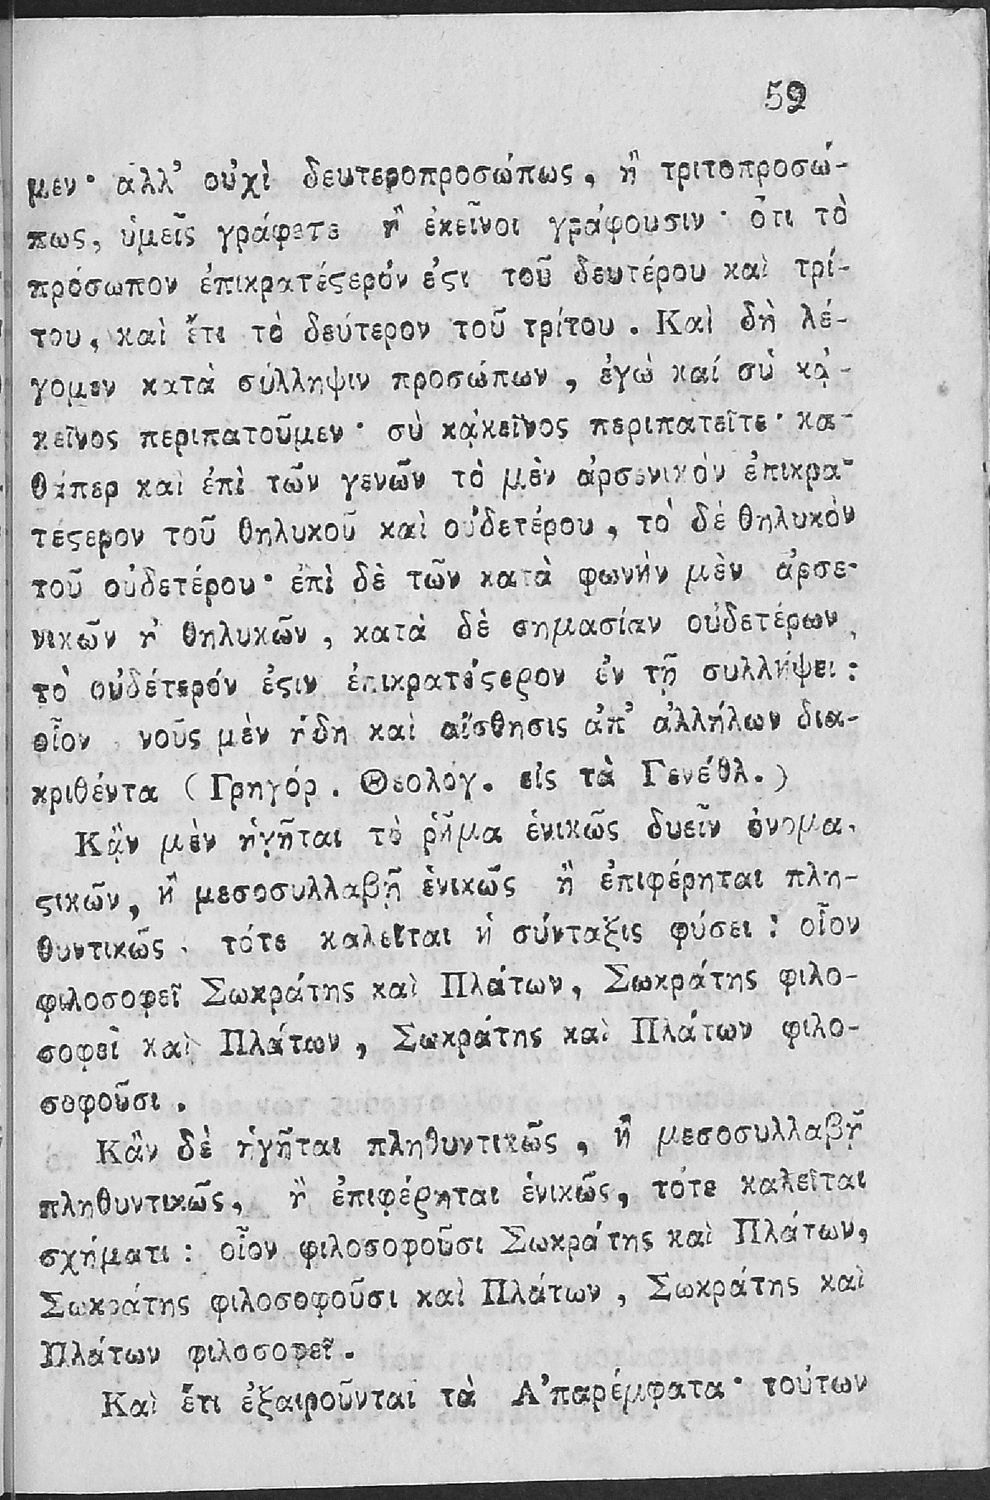 59
μεν· ἀλλ' οὐχὶ δευτεροπροσώπως, ἢ τριτοπροσώ-
πως, ὑμεῖς γράφετε ἢ ἐκεῖνοι γράφουσιν· ὅτι τὸ
πρόσωπον ἐπικρατέςερόν ἐςι τοῦ δευτέρου καὶ τρί-
του, καὶ ἔτι τὸ δεύτερον τοῦ τρίτου. Καὶ δὴ λέ-
γομεν κατὰ σύλληψιν προσώπων, ἐγὼ καί σὺ κᾀ-
κεῖνος περιπατοῦμεν· σὺ κᾀκεῖνος περιπατεῖτε· κα-
θάπερ καὶ ἐπὶ τῶν γενῶν τὸ μὲν ἀρσενικὸν ἐπικρα-
τέςερον τοῦ θηλυκοῦ καὶ οὐδετέρου, τὸ δὲ θηλυκὸν
τοῦ οὐδετέρου· ἐπὶ δὲ τῶν κατὰ φωνὴν μὲν ἀρσε-
νικῶν ἢ θηλυκῶν, κατὰ δὲ σημασίαν οὐδετέρων,
τὸ οὐδέτερόν ἐςιν ἐπικρατέςερον ἐν τῇ συλλήψει:
οἷον νοῦς μὲν ἤδη καὶ αἴσθησις ἀπ' ἀλλήλων δια-
κριθέντα (Γρηγόρ. Θεολόγ. εἰς τὰ Γενέθλ.)
Κᾂν μὲν ἡγῆται τὸ ῥῆμα ἑνικῶς δυεῖν ὀνομα-
ςικῶν, ἢ μεσοσυλλαβῇ ἑνικῶς ἢ ἐπιφέρηται πλη-
θυντικῶς, τότε καλεῖται ἡ σύνταξις φύσει: οἷον
φιλοσοφεῖ Σωκράτης καὶ Πλάτων, Σωκράτης φιλο-
σοφεῖ καὶ Πλάτων, Σωκράτης καὶ Πλάτων φιλο-
σοφοῦσι.
Κᾂν δὲ ἡγῆται πληθυντικῶς, ἢ μεσοσυλλαβῇ
πληθυντικῶς, ἢ ἐπιφέρηται ἑνικῶς, τότε καλεῖται
σχήματι: οἷον φιλοσοφοῦσι Σωκράτης καὶ Πλάτων,
Σωκράτης φιλοσοφοῦσι καὶ Πλάτων, Σωκράτης καὶ
Πλάτων φιλοσοφεῖ.
Καὶ ἔτι ἐξαιροῦνται τὰ Ἀπαρέμφατα· τούτων